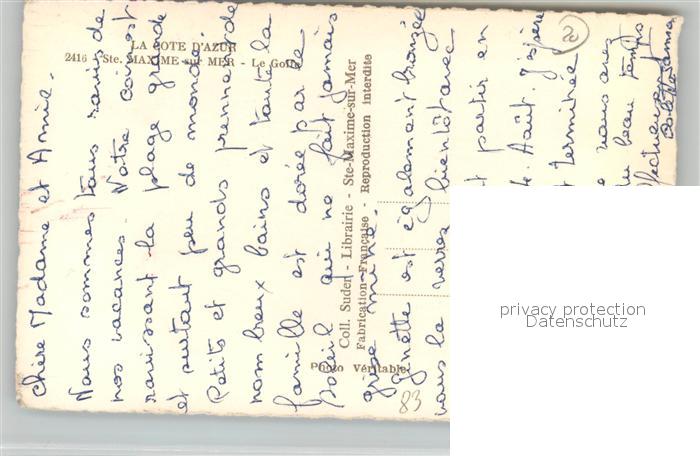 LA COTE D'AZUR
2416 - Ste. MAXIME sur MER - Le Golfe
Coll. Suder - Librairie - Ste-Maxime-sur-Mer
Fabrication Française - Reproduction interdite
Photo Véritable
Chère Madame et Annie.
Nous sommes tous ravis de
nos vacances. Notre coin est
ravissant la plage grande
et surtout peu de monde.
Petits et grands prennent de
nombreux bains et toute la
famille est dorée par le
soleil qui ne fait jamais
grise mine.
Ginette est également bronzée
vous la verrez bientôt avec
partir en
Août. J'espère
terminée
vous avez
du beau temps
83
privacy protection
Datenschutz